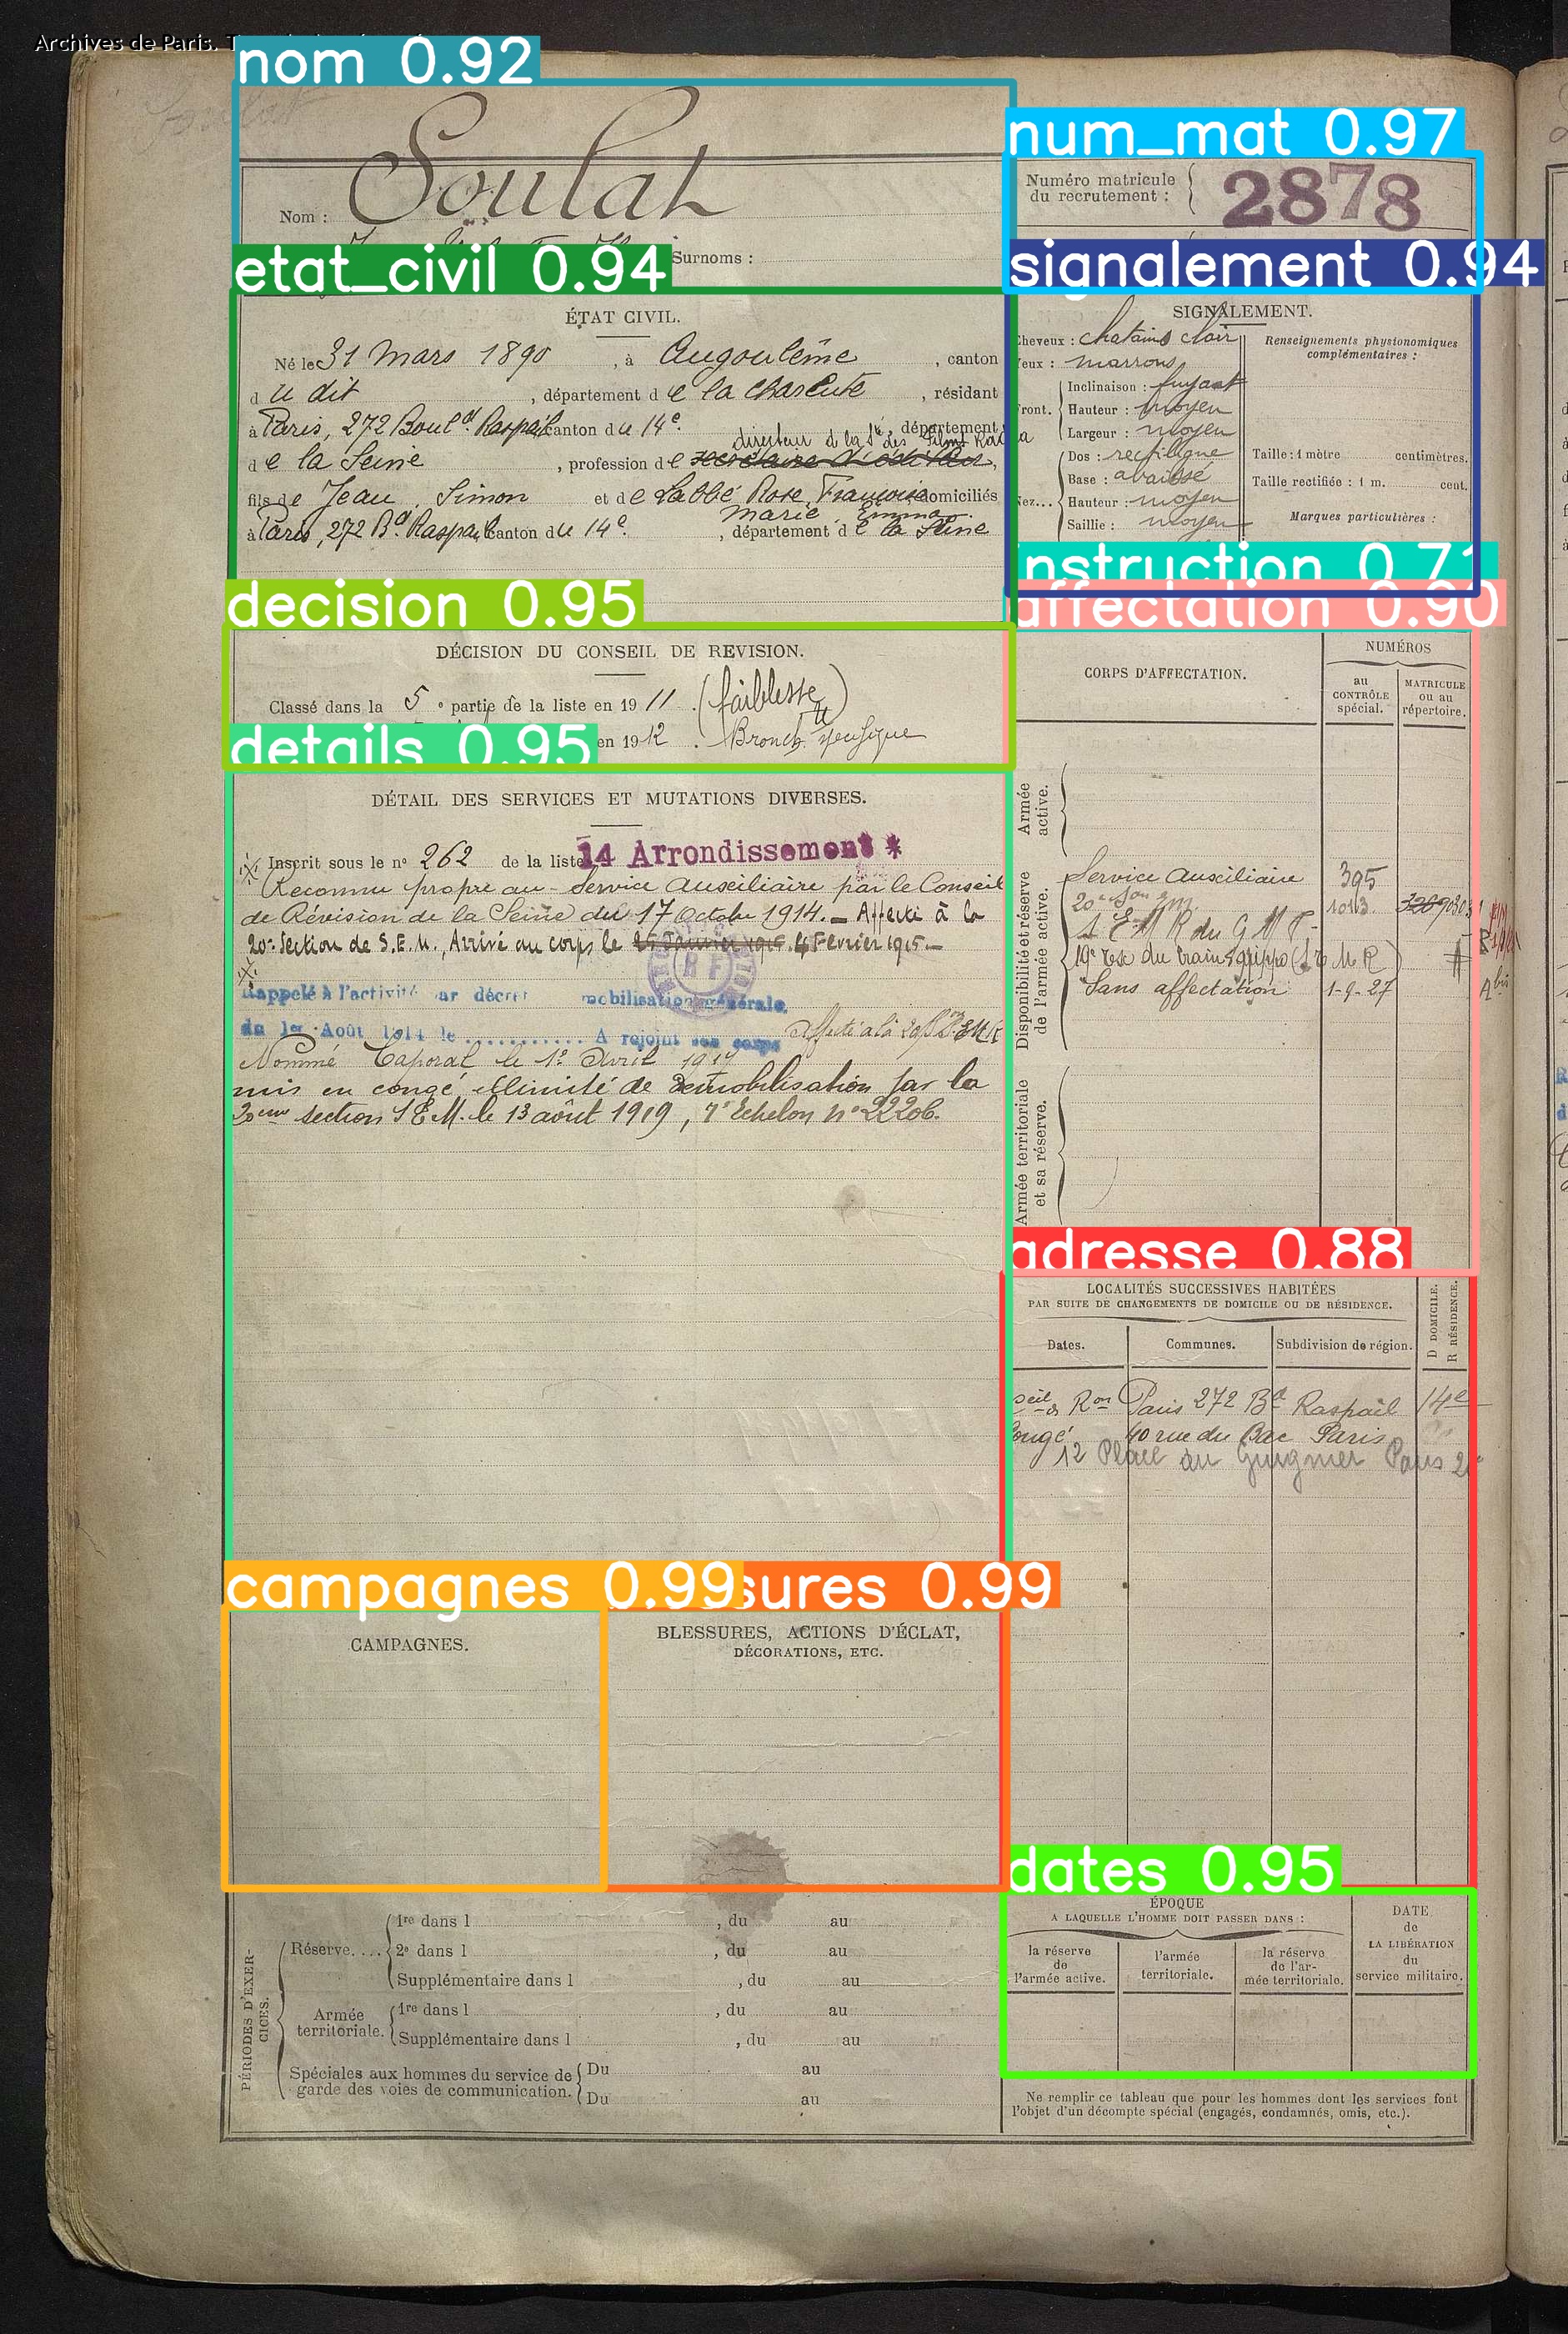 Archives de Paris.
nom 0.92
Soulat
Nom :
Surnoms :
num_mat 0.97
Numéro matricule
du recrutement :
2878
etat_civil 0.94
ÉTAT CIVIL.
Né le 31 Mars 1890, à Angoulême, canton
d u dit, département d e la Charente, résidant
à Paris, 272 Boul.d Raspail canton du 14e. département
directeur d la Sté des Films
d e la Seine, profession d e secrétaire,
fils de Jean, Simon et de Labbé Rose, Françoise domiciliés
marie, Emma.
à Paris, 272 Bd. Raspail canton du 14e., département d e la Seine
signalement 0.94
SIGNALEMENT.
Cheveux : chatains clair
Yeux : marrons
Front.
Inclinaison : fuyant
Hauteur : moyen
Largeur : moyen
Nez...
Dos : rectiligne
Base : abaissé
Hauteur : moyen
Saillie : moyen
Renseignements physionomiques
complémentaires :
Taille : 1 mètre centimètres.
Taille rectifiée : 1 m. cent.
Marques particulières :
instruction 0.71
decision 0.95
DÉCISION DU CONSEIL DE REVISION.
Classé dans la 5e partie de la liste en 1911. (faiblesse)
en 1912. Bronch.
details 0.95
DÉTAIL DES SERVICES ET MUTATIONS DIVERSES.
Inscrit sous le no 262 de la liste 14 Arrondissement *
Reconnu propre au Service Auxiliaire par le Conseil
de Révision de la Seine du 17 Octobre 1914. — Affecté à la
20e Section de S.E.M., Arrivé au corps le 25 Janvier 1915. 4 Février 1915.—
RF
Rappelé à l'activité par décret mobilisation générale.
du 1er Août 1914 le ............ A rejoint son corps Affecté à la 20e
Nommé Caporal le 1er Avril 1917
mis en congé illimité de démobilisation par la
20eme section S E M. le 13 août 1919, 7e Echelon no 22206.
affectation 0.90
CORPS D'AFFECTATION.
NUMÉROS
au
CONTRÔLE
spécial.
MATRICULE
ou au
répertoire.
Armée
active.
Disponibilité et réserve
de l'armée active.
Service Auxiliaire 395
20e Son 1013
S E M R du G M P
19e Esc du train (S r M R)
Sans affectation 1-9-27
Armée territoriale
et sa réserve.
adresse 0.88
LOCALITÉS SUCCESSIVES HABITÉES
PAR SUITE DE CHANGEMENTS DE DOMICILE OU DE RÉSIDENCE.
Dates.
Communes.
Subdivision de région.
D DOMICILE.
R RÉSIDENCE.
seil de Ron Paris 272 Bd Raspail 14e
Congé 40 rue du Bac Paris
12 Place du Guignier Paris 20
campagnes 0.99
CAMPAGNES.
sures 0.99
BLESSURES, ACTIONS D'ÉCLAT,
DÉCORATIONS, ETC.
PÉRIODES D'EXER-
CICES.
Réserve....
1re dans l , du au
2e dans l , du au
Supplémentaire dans l , du au
Armée
territoriale.
1re dans l , du au
Supplémentaire dans l , du au
Spéciales aux hommes du service de
garde des voies de communication.
Du au
Du au
dates 0.95
ÉPOQUE
A LAQUELLE L'HOMME DOIT PASSER DANS :
la réserve
de
l'armée active.
l'armée
territoriale.
la réserve
de l'ar-
mée territoriale.
DATE
de
LA LIBÉRATION
du
service militaire.
Ne remplir ce tableau que pour les hommes dont les services font
l'objet d'un décompte spécial (engagés, condamnés, omis, etc.).